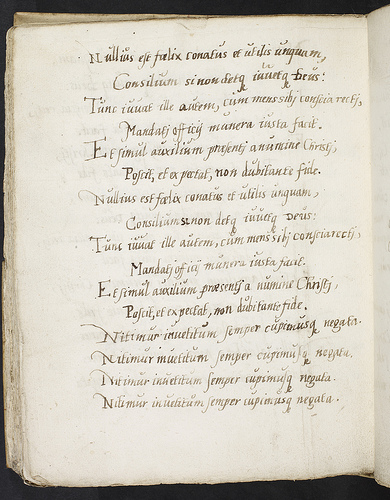 Nullius est fœlix conatus et utilis unquam,
Consilium si non detq iuuetq Deus:
Tunc iuuat ille autem, cum mens sibj conscia rectj,
Mandatj officij munera iusta facit.
Et simul auxilium præsentj a numine Christj,
Poscit, et expectat, non dubitante fide.
Nullius est fœlix conatus et utilis unquam,
Consilium si non detq iuuetq Deus:
Tunc iuuat ille autem, cum mens sibj conscia rectj,
Mandatj officij munera iusta facit.
Et simul auxilium præsentj a numine Christj,
Poscit, et expectat, non dubitante fide.
Nitimur inuetitum semper cupimusq negata.
Nitimur inuetitum semper cupimusq negata.
Nitimur inuetitum semper cupimusq negata.
Nitimur inuetitum semper cupimusq negata.